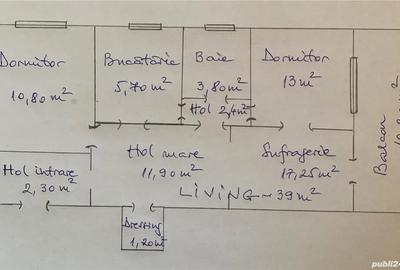 Dormitor
10,80 m²
Bucătărie
5,70 m²
Baie
3,80 m²
Hol 2,4 m²
Dormitor
13 m²
Balcon
Hol intrare
2,30 m²
Hol mare
11,90 m²
Sufragerie
17,25 m²
LIVING ~ 39 m²
Dressing
1,20 m²
publi24